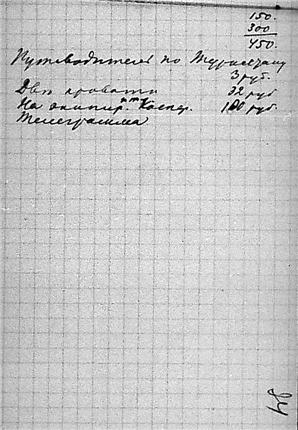 150.
300
450.
Путеводитель по Туркестану
3 руб.
Две кровати 32 руб
На экипир. Каспер. 100 руб
Телеграмма
34